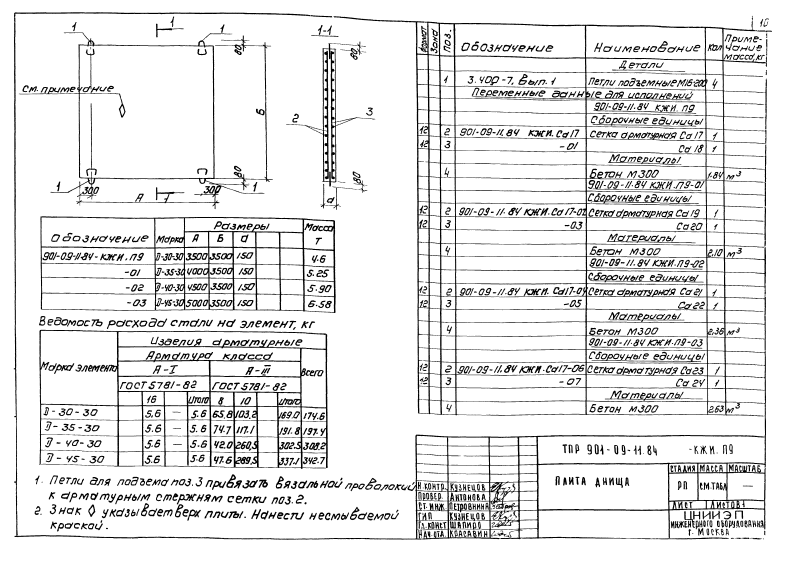 10
1
1
1
1
1-1
см. примечание
80
80
80
80
Б
2
3
1
1
300
300
А
1
а
Размеры
Масса
Обозначение Марка А Б а Т
901-09-11.84-КЖИ.П9 П-30-30 3500 3500 150 4.6
-01 П-35-30 4000 3500 150 5.25
-02 П-40-30 4500 3500 150 5.90
-03 П-45-30 5000 3500 150 6.58
Ведомость расхода стали на элемент, кг
Изделия арматурные
Арматура класса
Марка элемента А-I А-III Всего
ГОСТ 5781-82 ГОСТ 5781-82
16 Итого 8 10 Итого
П-30-30 5.6 — 5.6 65.8 103.2 169.0 174.6
П-35-30 5.6 — 5.6 74.7 117.1 191.8 197.4
П-40-30 5.6 — 5.6 42.0 260.5 302.5 308.2
П-45-30 5.6 5.6 47.6 289.5 337.1 342.7
1. Петли для подъема поз.3 привязать вязальной проволокой
к арматурным стержням сетки поз.2.
2. Знак ◊ указывает верх плиты. Нанести несмываемой
краской.
Формат Зона Поз. Обозначение Наименование Кол Примечание масса, кг
Детали
1 3.400-7, Вып.1 Петли подъемные М16-200 4
Переменные данные для исполнений
901-09-11.84 КЖИ.П9
Сборочные единицы
12 2 901-09-11.84 КЖИ.Са17 Сетка арматурная Са17 1
12 3 -01 Са18 1
Материалы
4 Бетон М300 1.84 м³
901-09-11.84 КЖИ.П9-01
Сборочные единицы
12 2 901-09-11.84 КЖИ.Са17-02 Сетка арматурная Са19 1
12 3 -03 Са20 1
Материалы
4 Бетон М300 2.10 м³
901-09-11.84 КЖИ.П9-02
Сборочные единицы
12 2 901-09-11.84 КЖИ.Са17-04 Сетка арматурная Са21 1
12 3 -05 Са22 1
Материалы
4 Бетон М300 2.36 м³
901-09-11.84 КЖИ.П9-03
Сборочные единицы
12 2 901-09-11.84 КЖИ.Са17-06 Сетка арматурная Са23 1
12 3 -07 Са24 1
Материалы
4 Бетон М300 2.63 м³
ТПР 901-09-11.84 -КЖИ.П9
Плита днища
Стадия Масса Масштаб
РП см.табл —
Лист Листов 1
ЦНИИЭП
инженерного оборудования
г. Москва
Н.контр. Кузнецов
Провер. Антонова
Ст.инж. Петровнина
ГИП Кузнецов
Гл.конст Шапиро
Нач.отд. Красавин